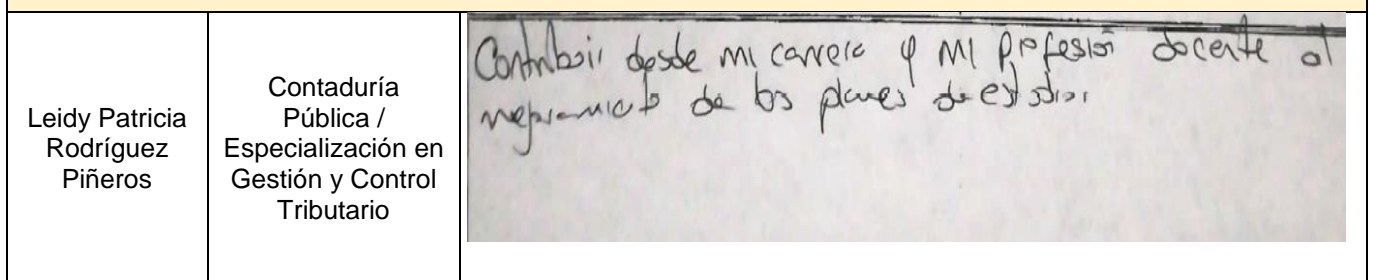 Leidy Patricia
Rodríguez
Piñeros
Contaduría
Pública /
Especialización en
Gestión y Control
Tributario
Contribuir desde mi carrera y mi profesión docente al
mejoramiento de los planes de estudios.